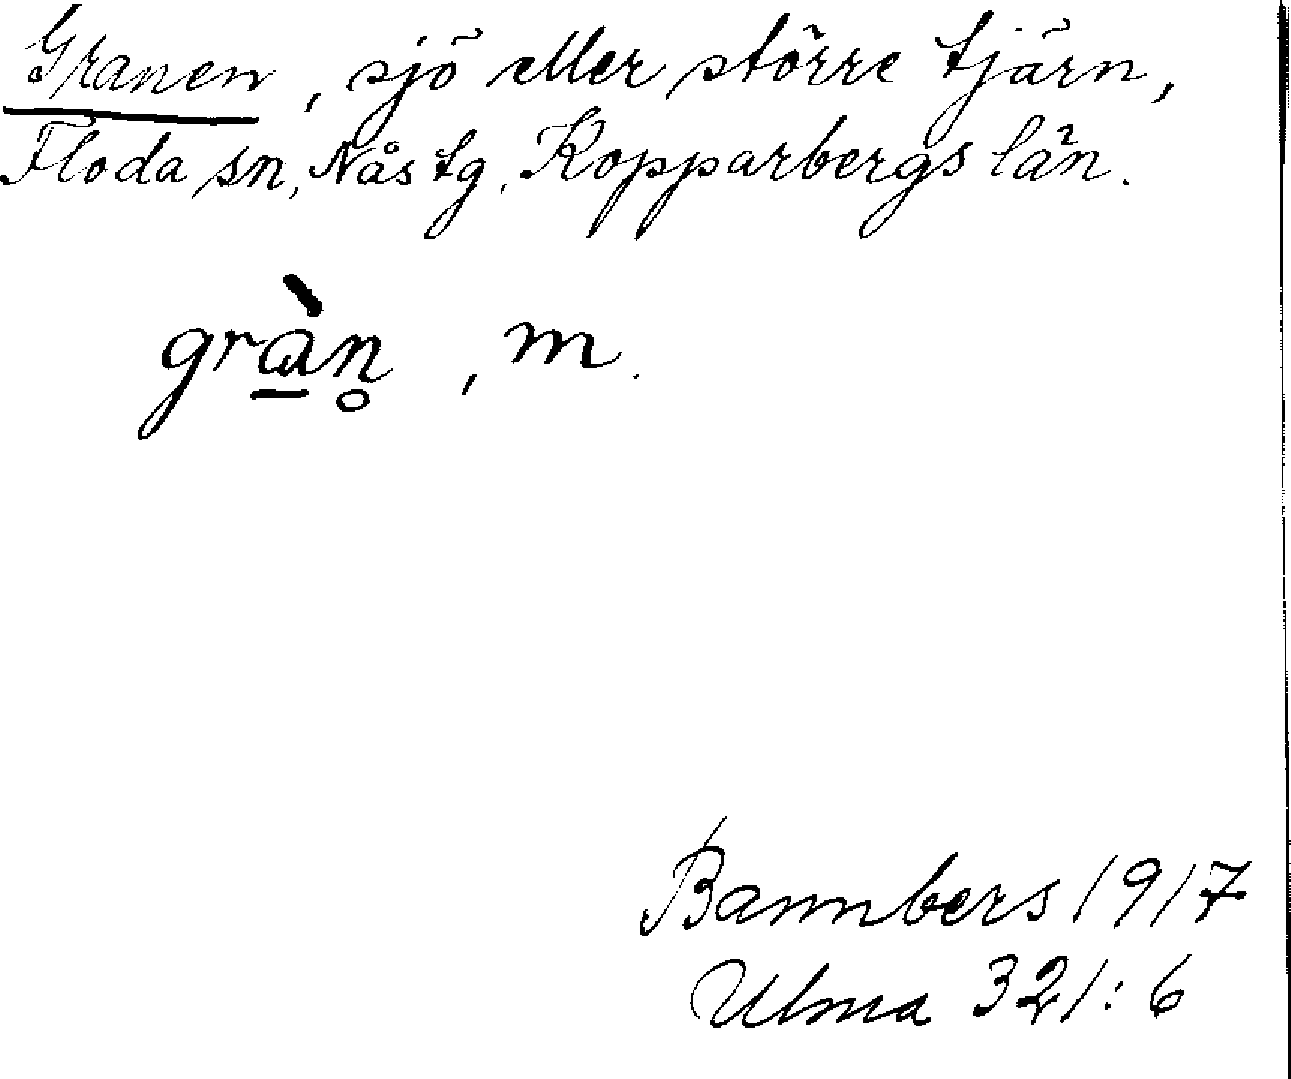 Granen, sjö eller större tjärn,
Floda sn, Nås tg, Kopparbergs län.
grà̱n̥, m.
Bannbers 1917
Ulma 321:6